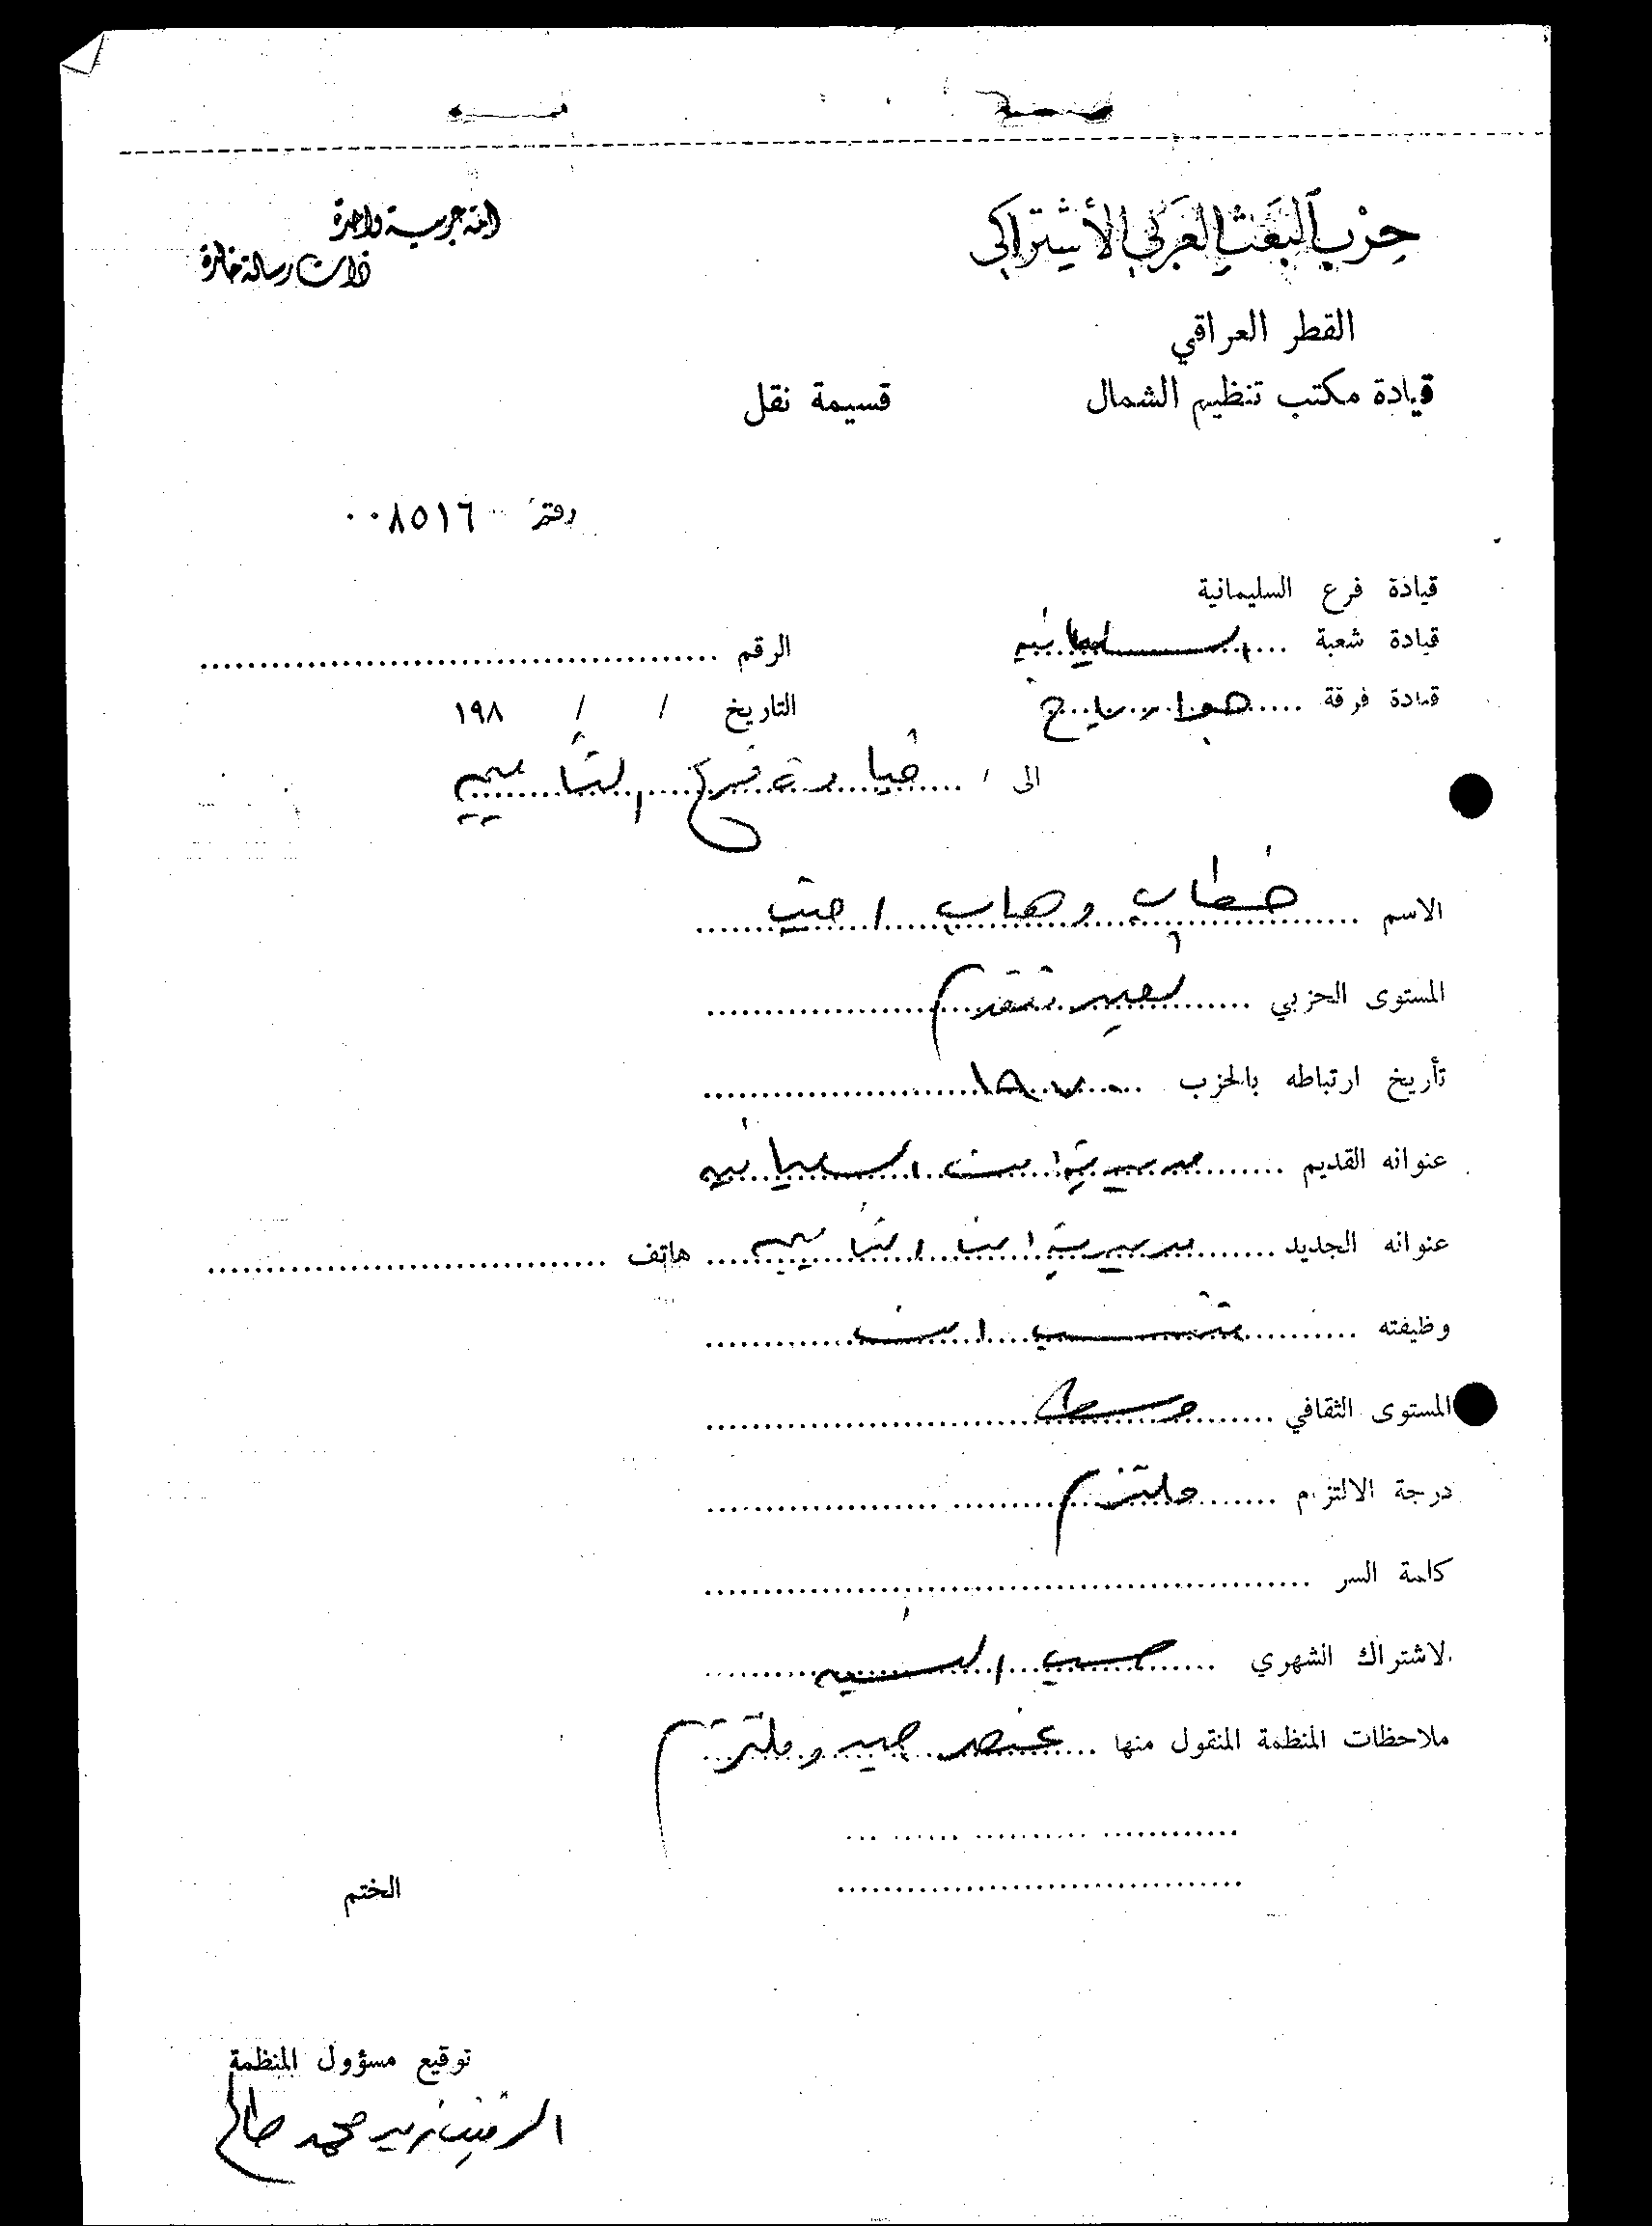 حزب البعث العربي الاشتراكي
امة عربية واحدة
ذات رسالة خالدة
القطر العراقي
قيادة مكتب تنظيم الشمال
قسيمة نقل
رقم ٠٠٨٥١٦
قيادة فرع السليمانية
قيادة شعبة السليمانيه
الرقم
قيادة فرقة هوار
التاريخ / / ١٩٨
الى / قيادة فرع التأميم
الاسم خطاب وهاب
المستوى الحزبي نصير متقدم
تأريخ ارتباطه بالحزب ١٩٧٠
عنوانه القديم مديرية امن السليمانيه
عنوانه الجديد مديرية امن التأميم هاتف
وظيفته منتسب امن
المستوى الثقافي وسط
درجة الالتزام ملتزم
كلمة السر
الاشتراك الشهري حسب النسبه
ملاحظات المنظمة المنقول منها عنصر جيد وملتزم
الختم
توقيع مسؤول المنظمة
الرفيق محمد صالح